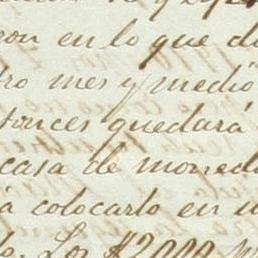 ron en lo que d
ro mes y medio
tonces quedará
casa de moned
á colocarlo en u
lo. Los $2000